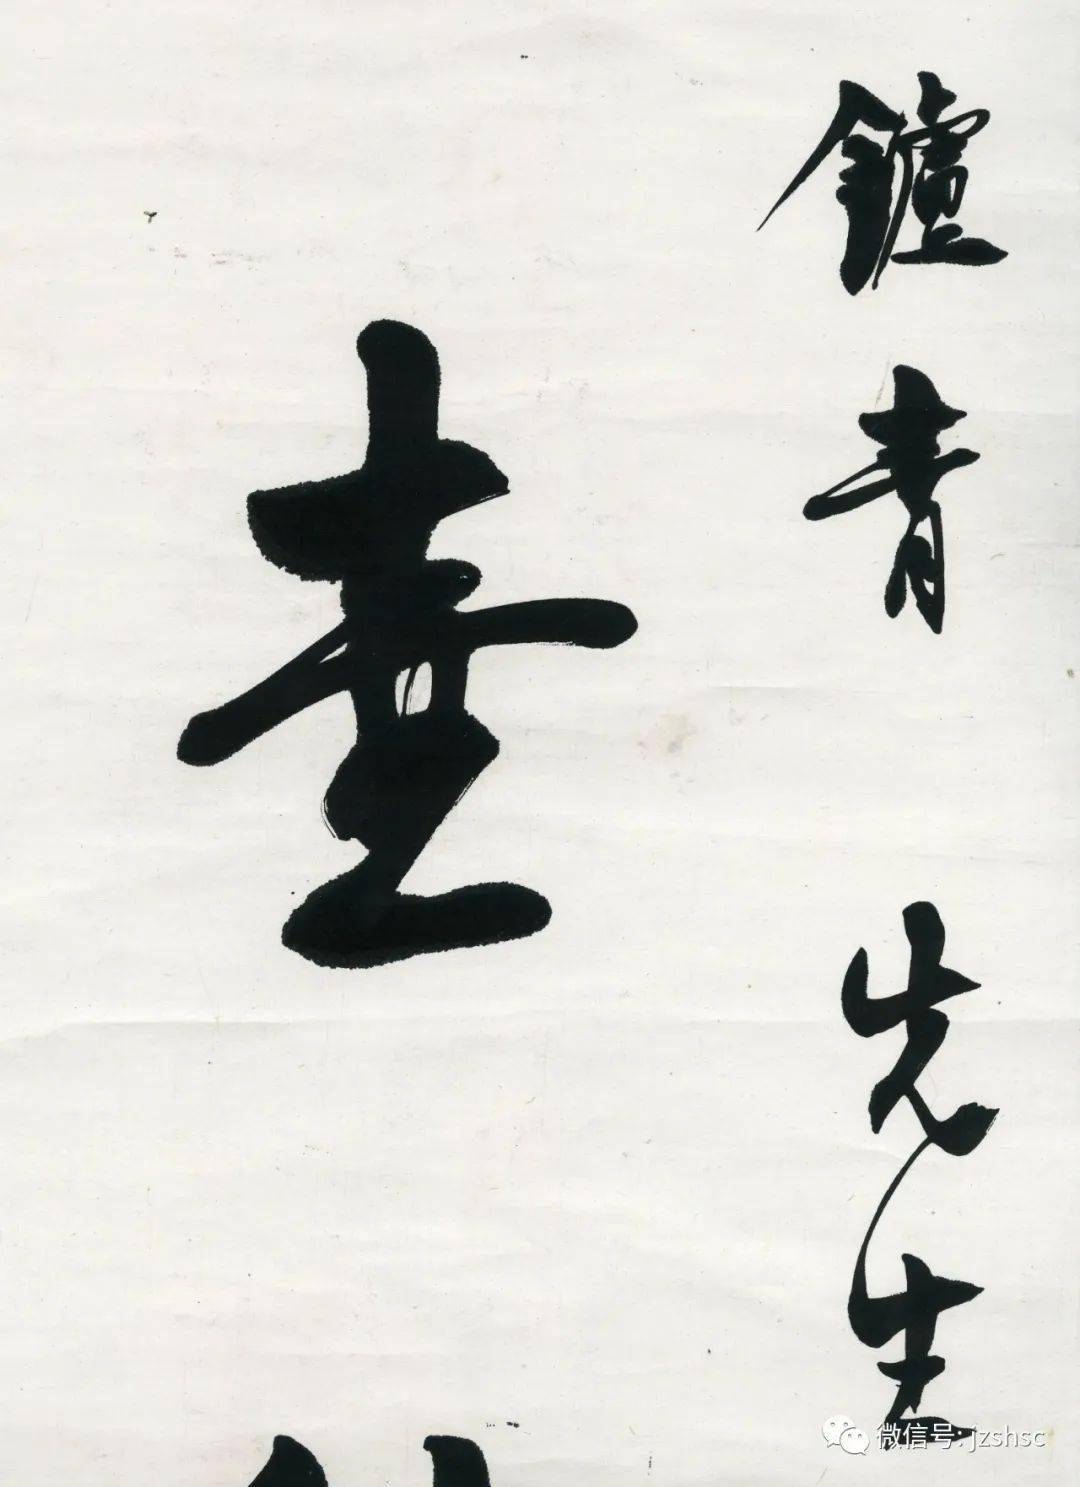 鑪青先生
壺
微信号: jzshsc